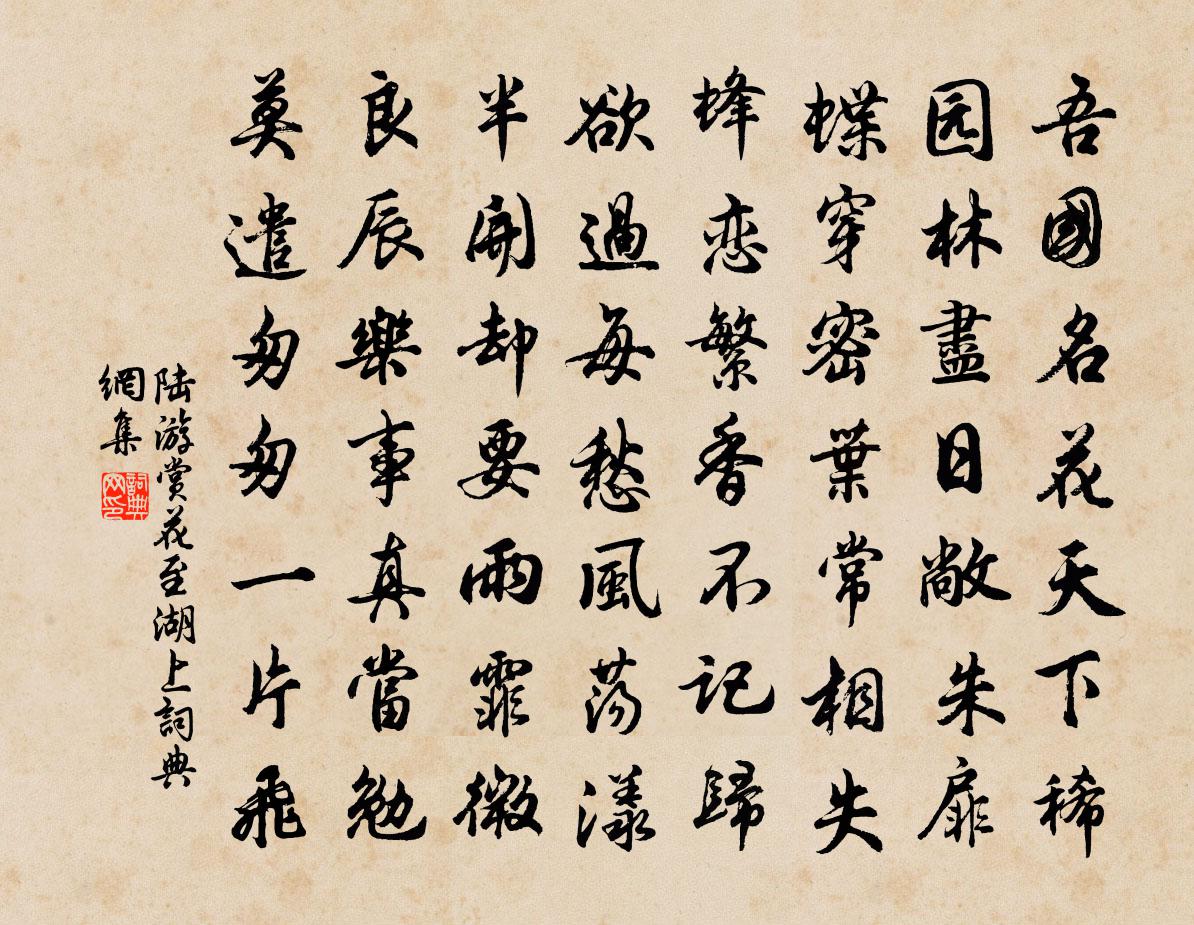 吾國名花天下稀
园林盡日敞朱扉
蝶穿密葉常相失
蜂恋繁香不记歸
欲過每愁風荡漾
半開却要雨霏微
良辰樂事真當勉
莫遣匆匆一片飛
陆游赏花至湖上詞典
網集
詞典
网印